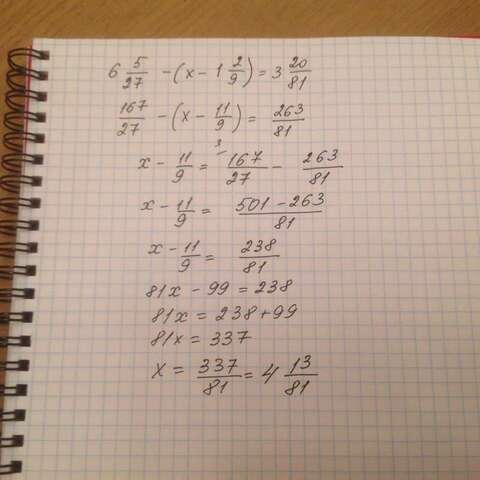 6 5/27 - (x - 1 2/9) = 3 20/81
167/27 - (x - 11/9) = 263/81
x - 11/9 = 3 167/27 - 263/81
x - 11/9 = 501 - 263/81
x - 11/9 = 238/81
81x - 99 = 238
81x = 238 + 99
81x = 337
x = 337/81 = 4 13/81